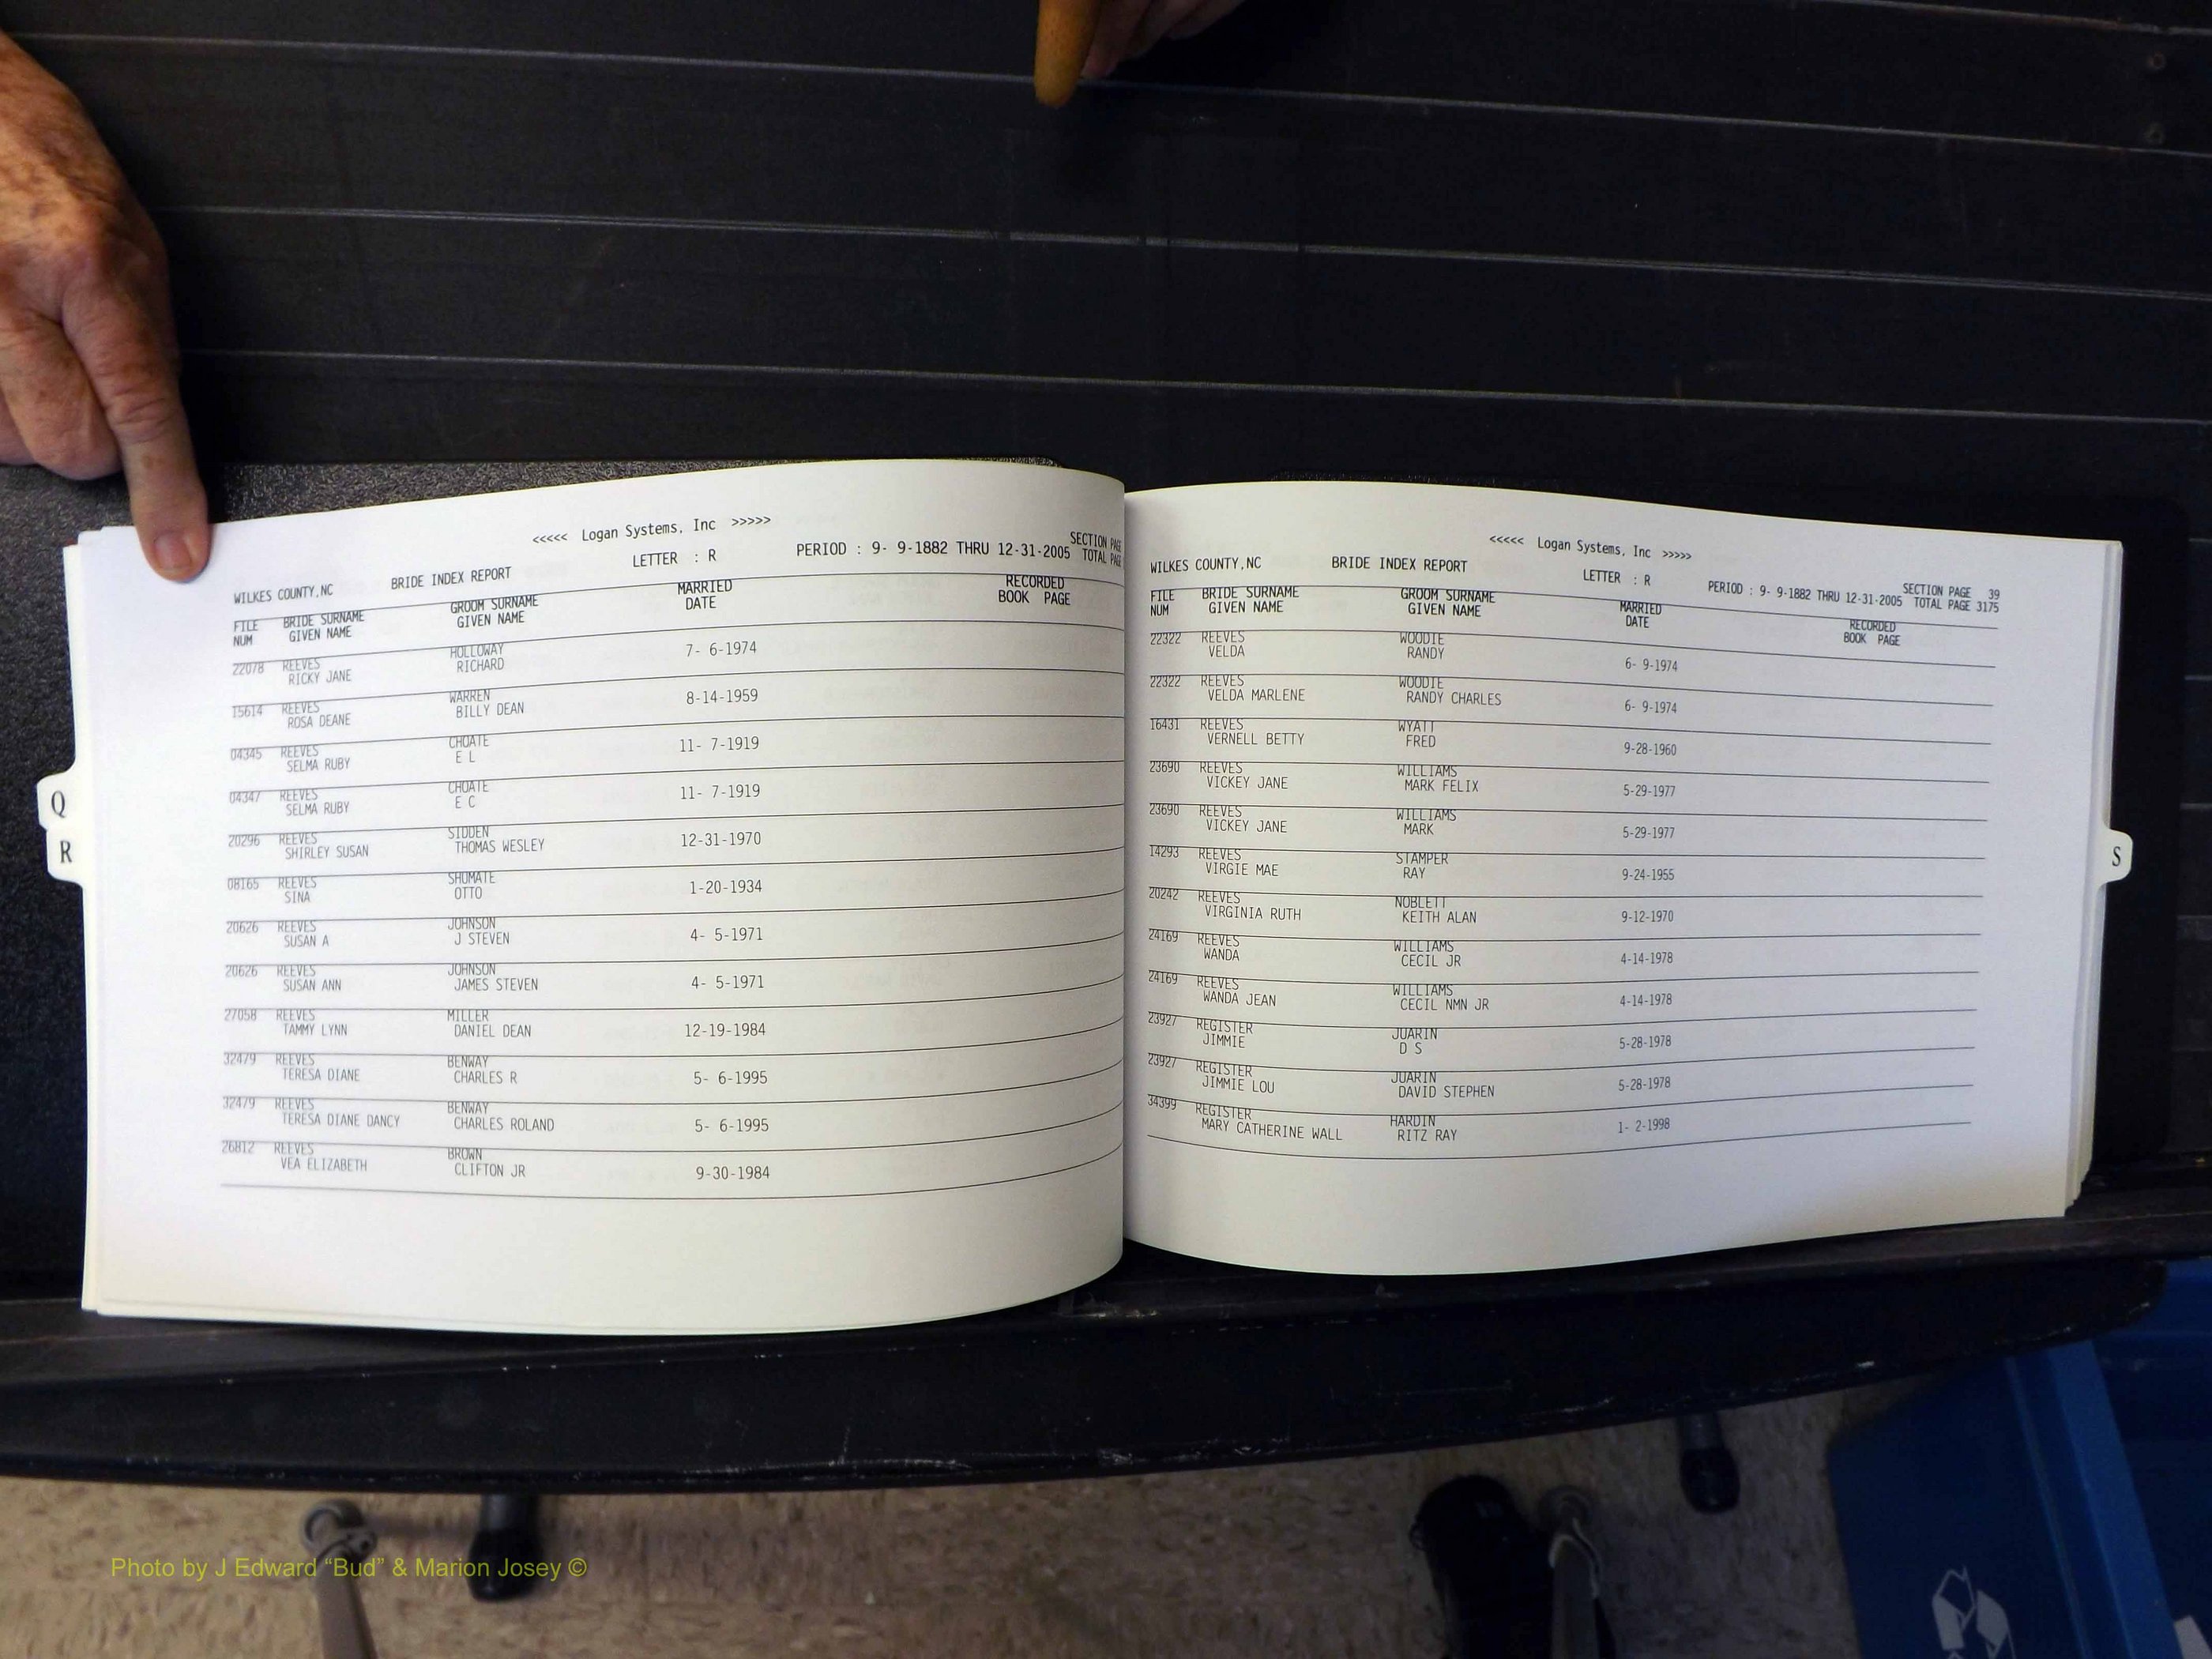 <<<<< Logan Systems, Inc >>>>>
WILKES COUNTY,NC BRIDE INDEX REPORT LETTER : R PERIOD : 9- 9-1882 THRU 12-31-2005 SECTION PAGE
TOTAL PAGE
FILE BRIDE SURNAME GROOM SURNAME MARRIED RECORDED
NUM GIVEN NAME GIVEN NAME DATE BOOK PAGE
22078 REEVES HOLLOWAY 7- 6-1974
RICKY JANE RICHARD
15614 REEVES WARREN 8-14-1959
ROSA DEANE BILLY DEAN
04345 REEVES CHOATE 11- 7-1919
SELMA RUBY E L
04347 REEVES CHOATE 11- 7-1919
SELMA RUBY E C
20296 REEVES SIDDEN 12-31-1970
SHIRLEY SUSAN THOMAS WESLEY
08165 REEVES SHUMATE 1-20-1934
SINA OTTO
20626 REEVES JOHNSON 4- 5-1971
SUSAN A J STEVEN
20626 REEVES JOHNSON 4- 5-1971
SUSAN ANN JAMES STEVEN
27058 REEVES MILLER 12-19-1984
TAMMY LYNN DANIEL DEAN
32479 REEVES BENWAY 5- 6-1995
TERESA DIANE CHARLES R
32479 REEVES BENWAY 5- 6-1995
TERESA DIANE DANCY CHARLES ROLAND
26812 REEVES BROWN 9-30-1984
VEA ELIZABETH CLIFTON JR
Q
R
<<<<< Logan Systems, Inc >>>>>
WILKES COUNTY,NC BRIDE INDEX REPORT LETTER : R PERIOD : 9- 9-1882 THRU 12-31-2005 SECTION PAGE 39
TOTAL PAGE 3175
FILE BRIDE SURNAME GROOM SURNAME MARRIED RECORDED
NUM GIVEN NAME GIVEN NAME DATE BOOK PAGE
22322 REEVES WOODIE 6- 9-1974
VELDA RANDY
22322 REEVES WOODIE 6- 9-1974
VELDA MARLENE RANDY CHARLES
16431 REEVES WYATT 9-28-1960
VERNELL BETTY FRED
23690 REEVES WILLIAMS 5-29-1977
VICKEY JANE MARK FELIX
23690 REEVES WILLIAMS 5-29-1977
VICKEY JANE MARK
14293 REEVES STAMPER 9-24-1955
VIRGIE MAE RAY
20242 REEVES NOBLETT 9-12-1970
VIRGINIA RUTH KEITH ALAN
24169 REEVES WILLIAMS 4-14-1978
WANDA CECIL JR
24169 REEVES WILLIAMS 4-14-1978
WANDA JEAN CECIL NMN JR
23927 REGISTER JUARIN 5-28-1978
JIMMIE D S
23927 REGISTER JUARIN 5-28-1978
JIMMIE LOU DAVID STEPHEN
34399 REGISTER HARDIN 1- 2-1998
MARY CATHERINE WALL RITZ RAY
S
Photo by J Edward “Bud” & Marion Josey ©